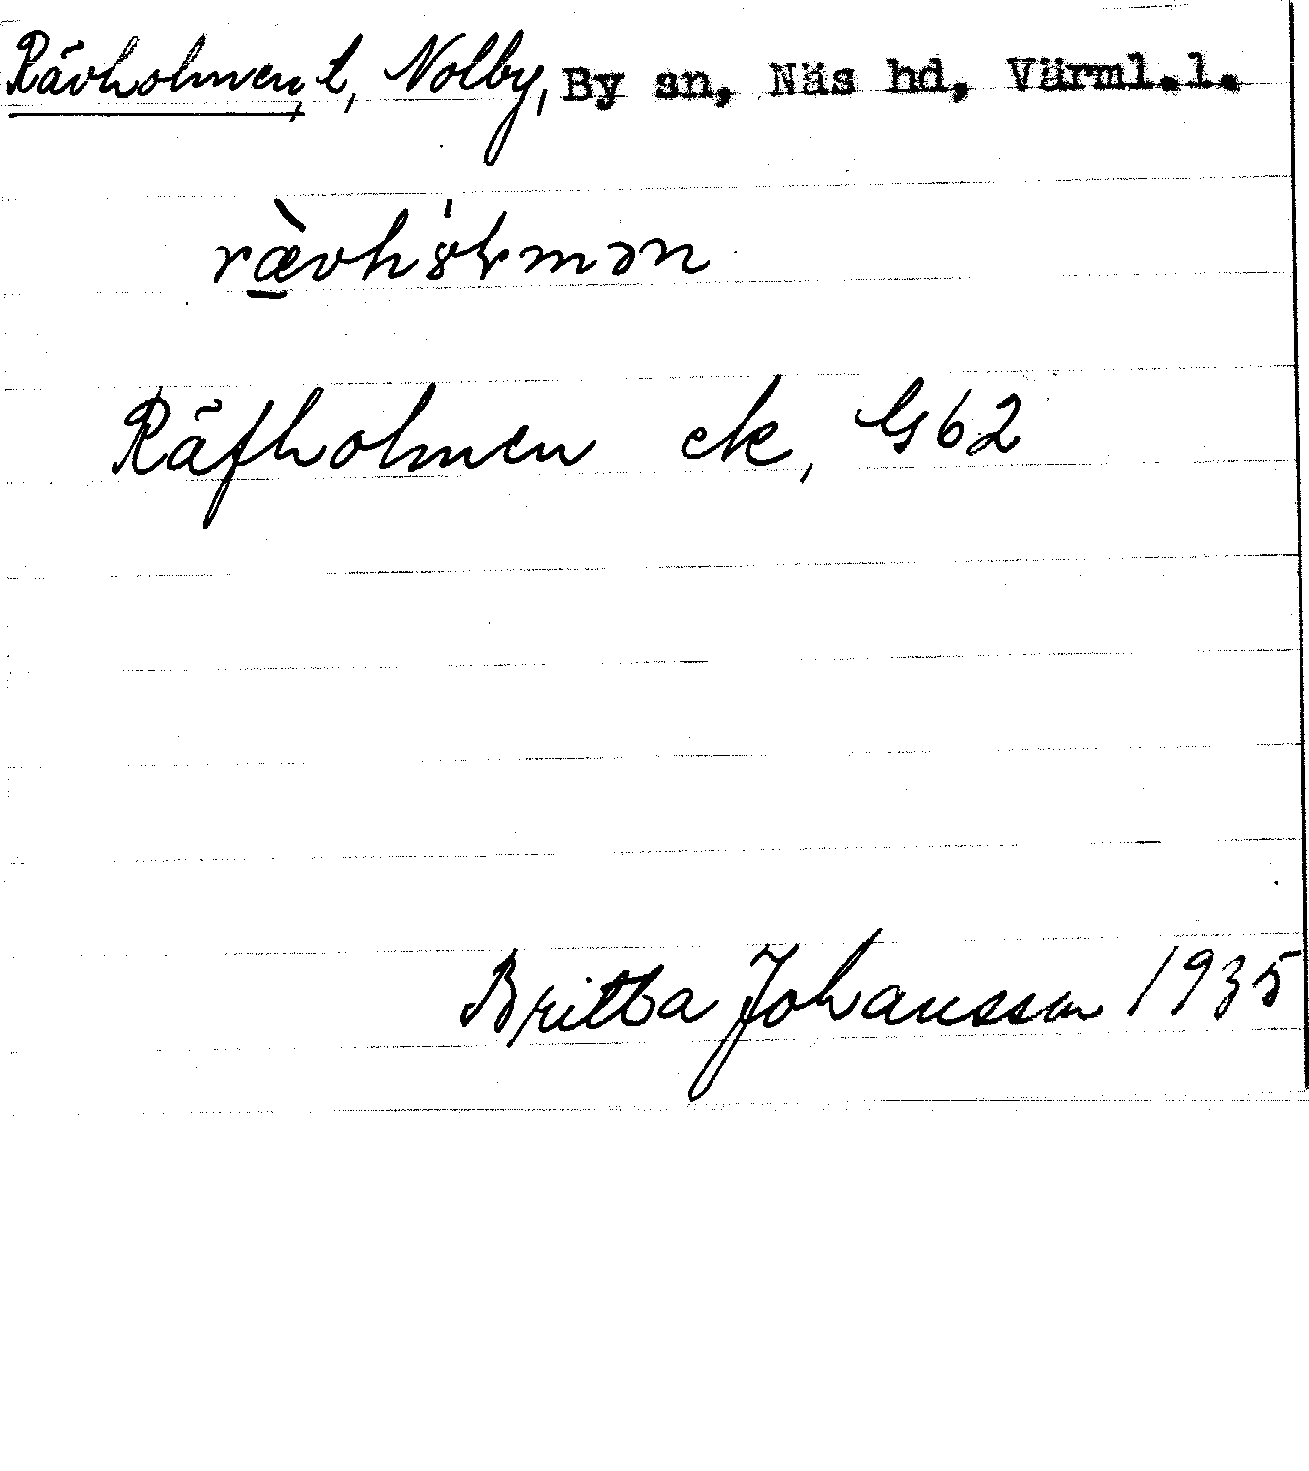 Rävholmen, t, Nolby, By sn, Näs hd, Värml.l.
rævhɔɽmən
Räfholmen ek, G62
Britta Johansson 1935